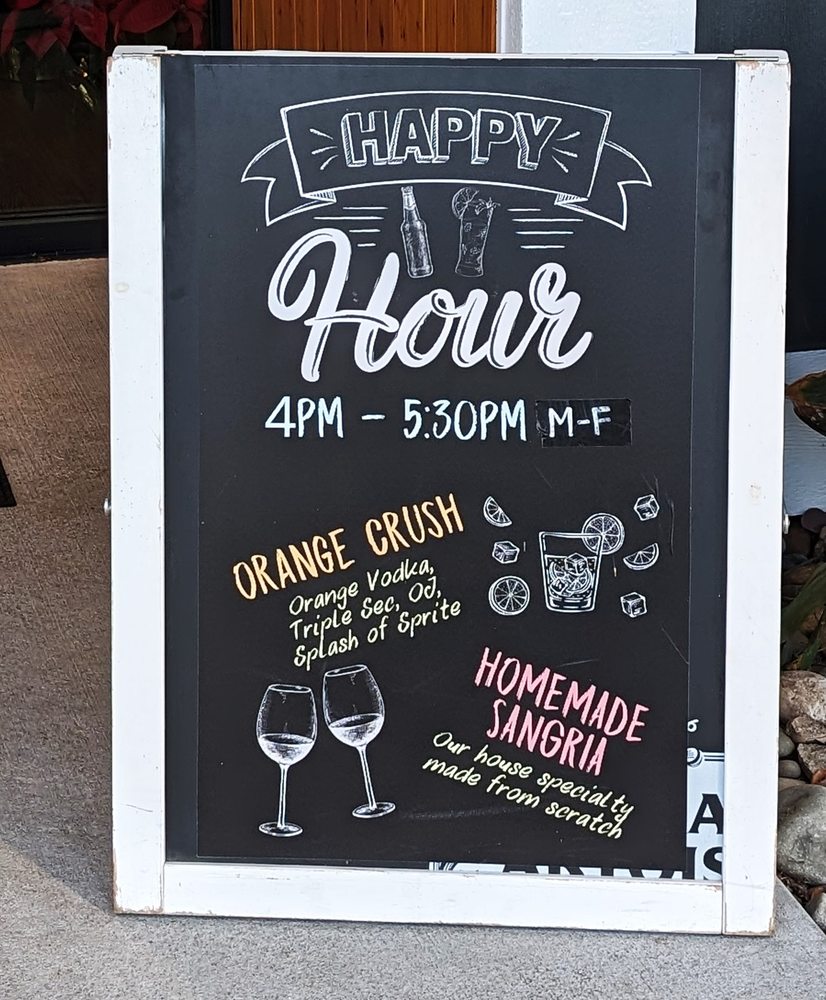 HAPPY
Hour
4PM – 5:30PM M-F
ORANGE CRUSH
Orange Vodka,
Triple Sec, OJ,
Splash of Sprite
HOMEMADE
SANGRIA
Our house specialty
made from scratch